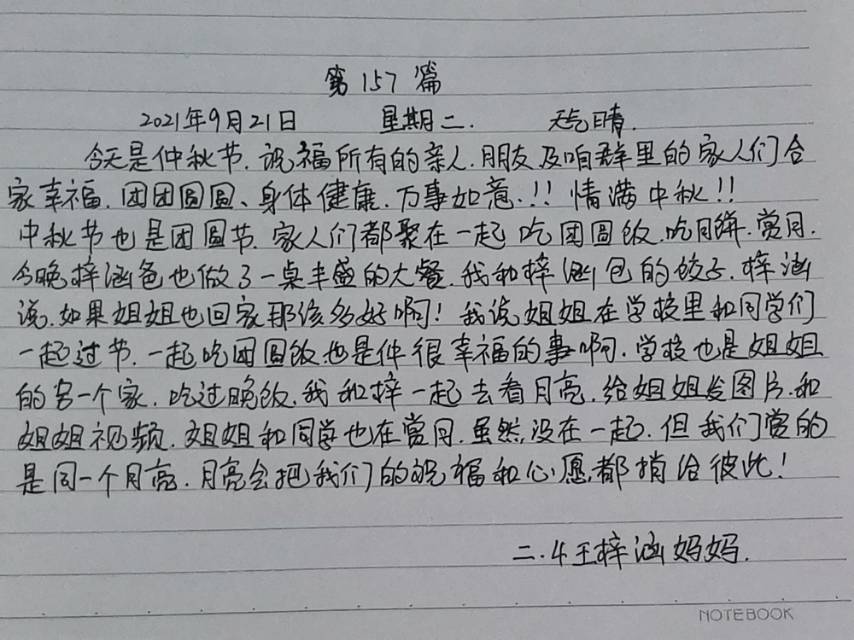 第157篇
2021年9月21日 星期二. 天气晴.
今天是仲秋节.祝福所有的亲人.朋友及咱群里的家人们合
家幸福.团团圆圆、身体健康.万事如意.!!情满中秋!!
中秋节也是团圆节.家人们都聚在一起吃团圆饭.吃月饼.赏月.
今晚梓涵爸也做了一桌丰盛的大餐.我和梓涵包的饺子.梓涵
说.如果姐姐也回家那该多好啊!我说姐姐在学校里和同学们
一起过节.一起吃团圆饭也是件很幸福的事啊.学校也是姐姐
的另一个家.吃过晚饭.我和梓一起去看月亮.给姐姐发图片.和
姐姐视频.姐姐和同学也在赏月.虽然,没在一起.但我们赏的
是同一个月亮.月亮会把我们的祝福和心愿,都捎给彼此!
二.4王梓涵妈妈.
NOTEBOOK